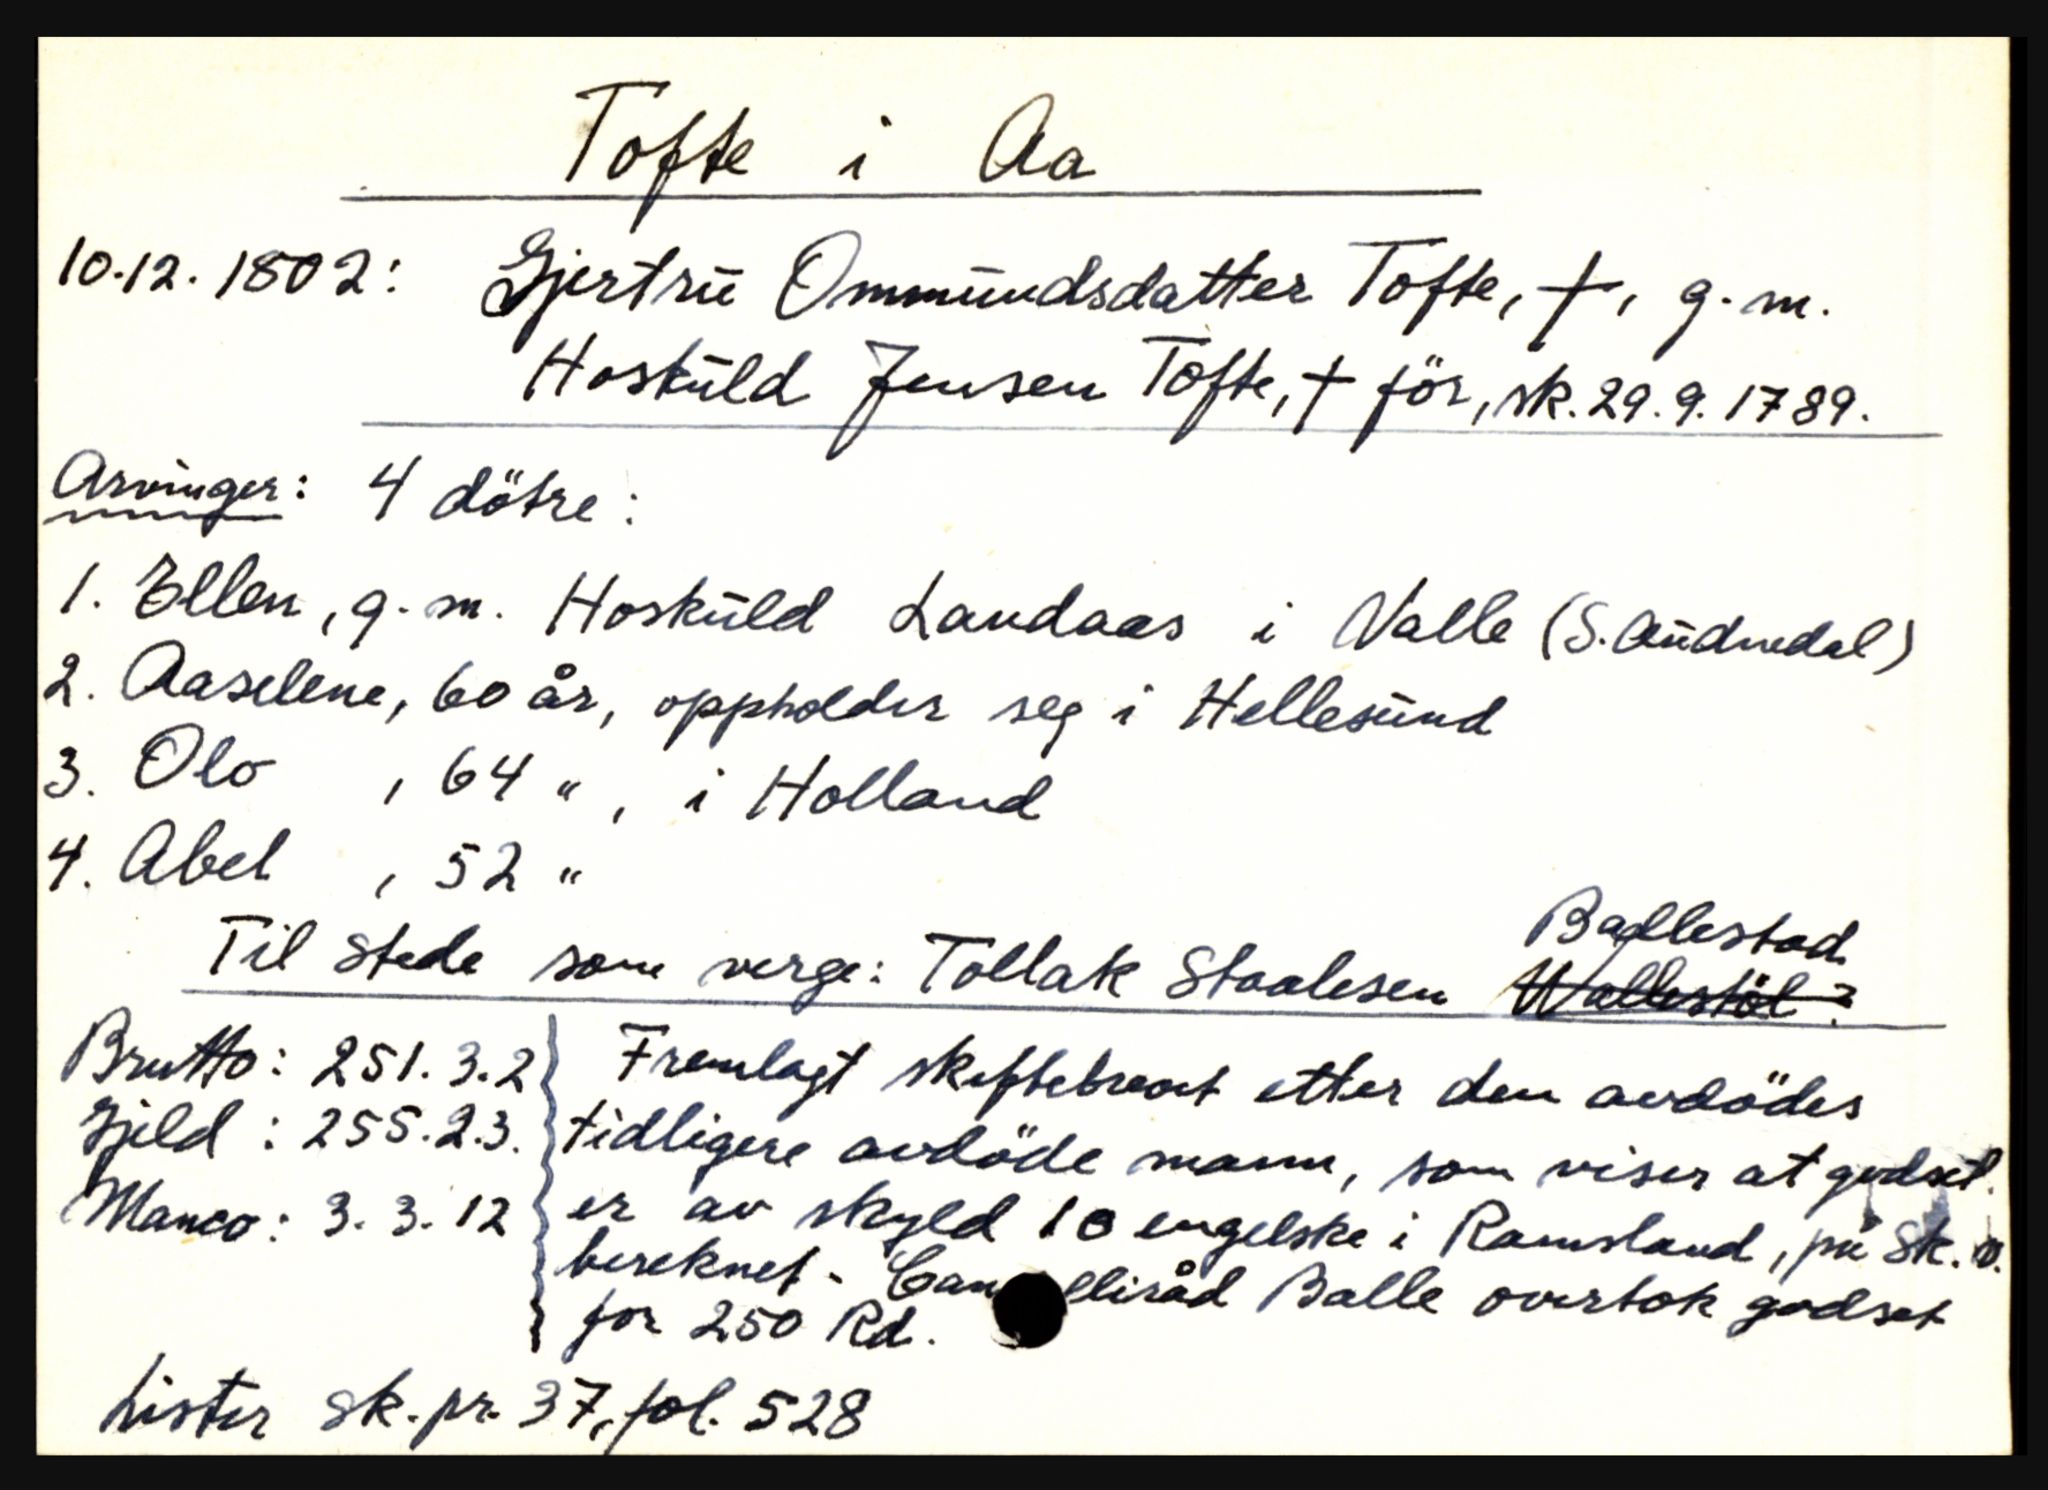 Tofte i Aa
10.12.1802: Gjertrū Ommūndsdatter Tofte, †, g.m.
Hoskūld Jensen Tofte, † för, sk. 29.9.1789.
Arvinger: 4 dötre:
1. Ellen, g.m. Hoskūld Landaas i Valle (S. Aūdnedal)
2. Aaselene, 60 år, oppholder seg i Hellesūnd
3. Olo , 64 " , i Holland
4. Abel , 52 "
Badlestad
Til stede som verge: Tollak Staalesen Wallestöl?
Brutto: 251.3.2
Gjeld : 255.2.3.
Manco: 3.3.12
Fremlagt skiftebrevet etter den avdödes
tidligere avdöde mann, som viser at godset
er av skyld 10 engelske i Ramsland, på Sk.
bereknet. Cancelliråd Balle overtok godset
for 250 Rd.
Lister sk.pr. 37, fol. 528